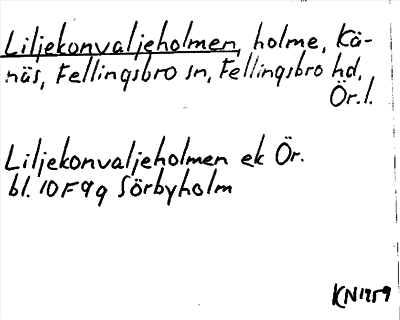 Liljekonvaljeholmen, holme, Kä-
näs, Fellingsbro sn, Fellingsbro hd,
Ör.l.
Liljekonvaljeholmen ek Ör.
bl. 10F9g Sörbyholm
KN1959